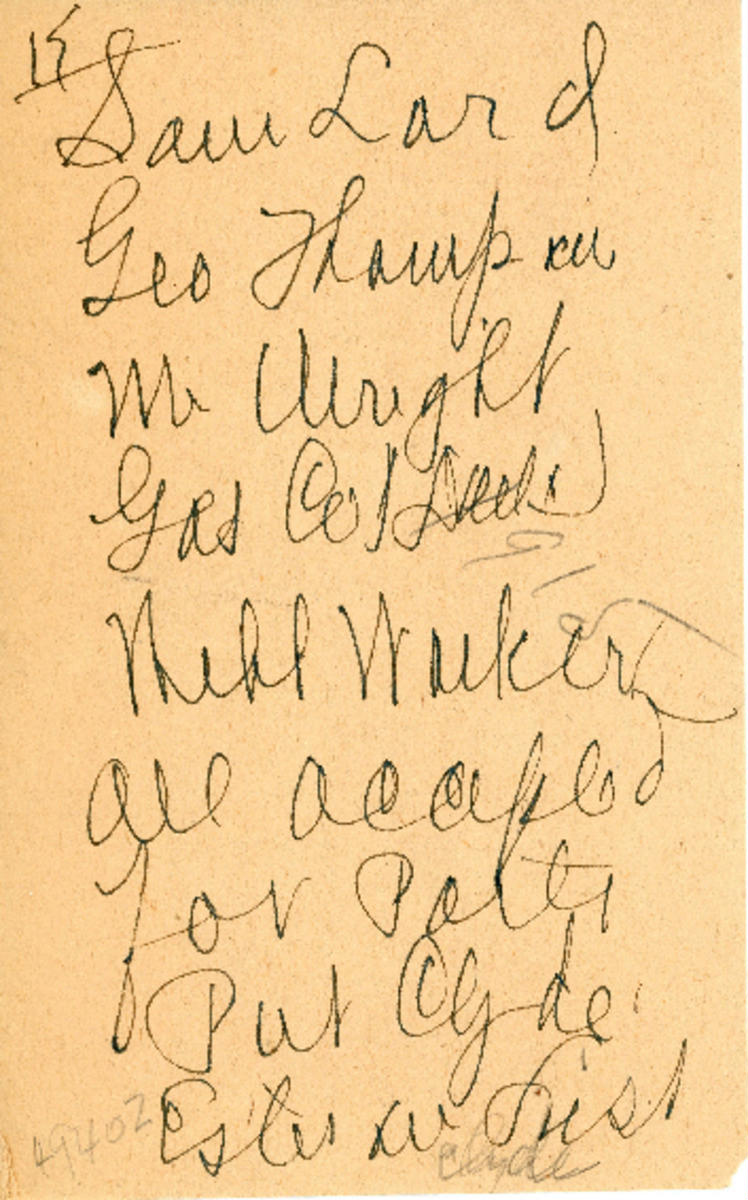 15
Sam Lard
Geo Thompson
Mr Wright
Gas Co
Walker
all accepted
for Potts
Put Clyde
Estes on list
49402 Clyde